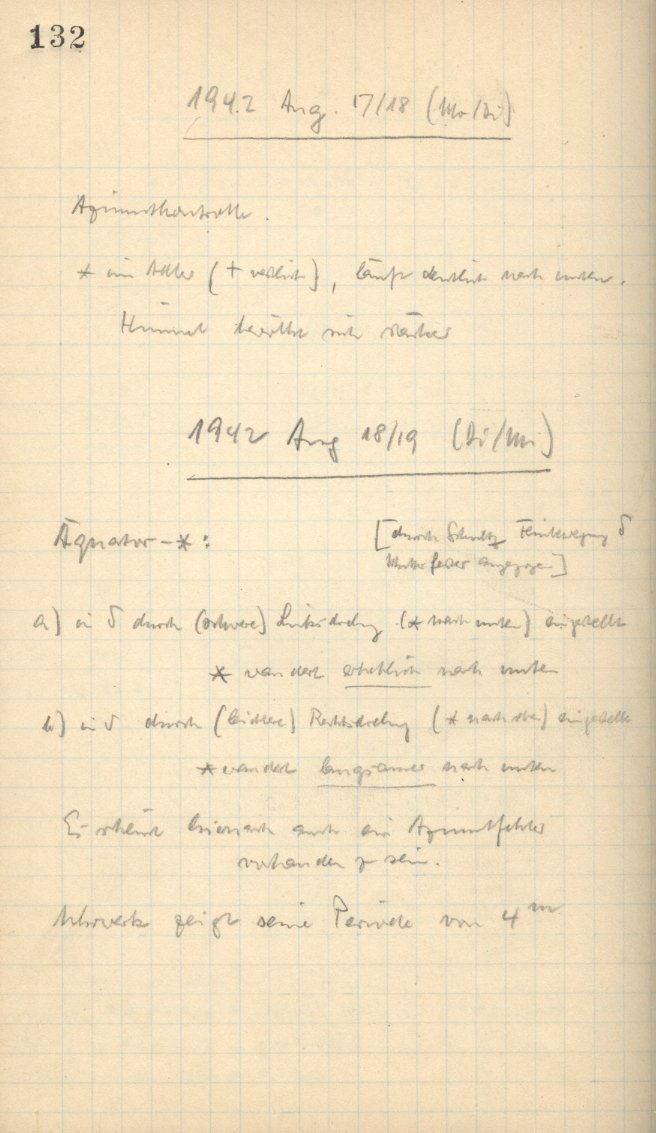 132
1942 Aug. 17/18 (Mo/Di)
Azimutkontrolle.
* im Adler (+ westlich), läuft deutlich nach unten.
Himmel bewölkt sich stärker
1942 Aug 18/19 (Di/Mi)
Äquator-*:
[durch Feinbewegung δ
fester angezogen]
a) in δ durch (schwere) Linksdrehung (* nach unten) eingestellt
* wandert erheblich nach unten
b) in δ durch (leichtere) Rechtsdrehung (* nach oben) eingestellt
* wandert langsamer nach unten
Es scheint hiernach auch ein Azimutfehler
vorhanden z sein.
Uhrwerk zeigt seine Periode von 4ᵐ